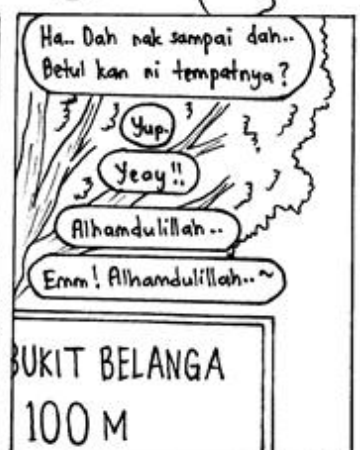 Ha.. Dah nak sampai dah..
Betul kan ni tempatnya?
Yup.
Yeay!!
Alhamdulillah..
Emm! Alhamdulillah..~
BUKIT BELANGA
100 M